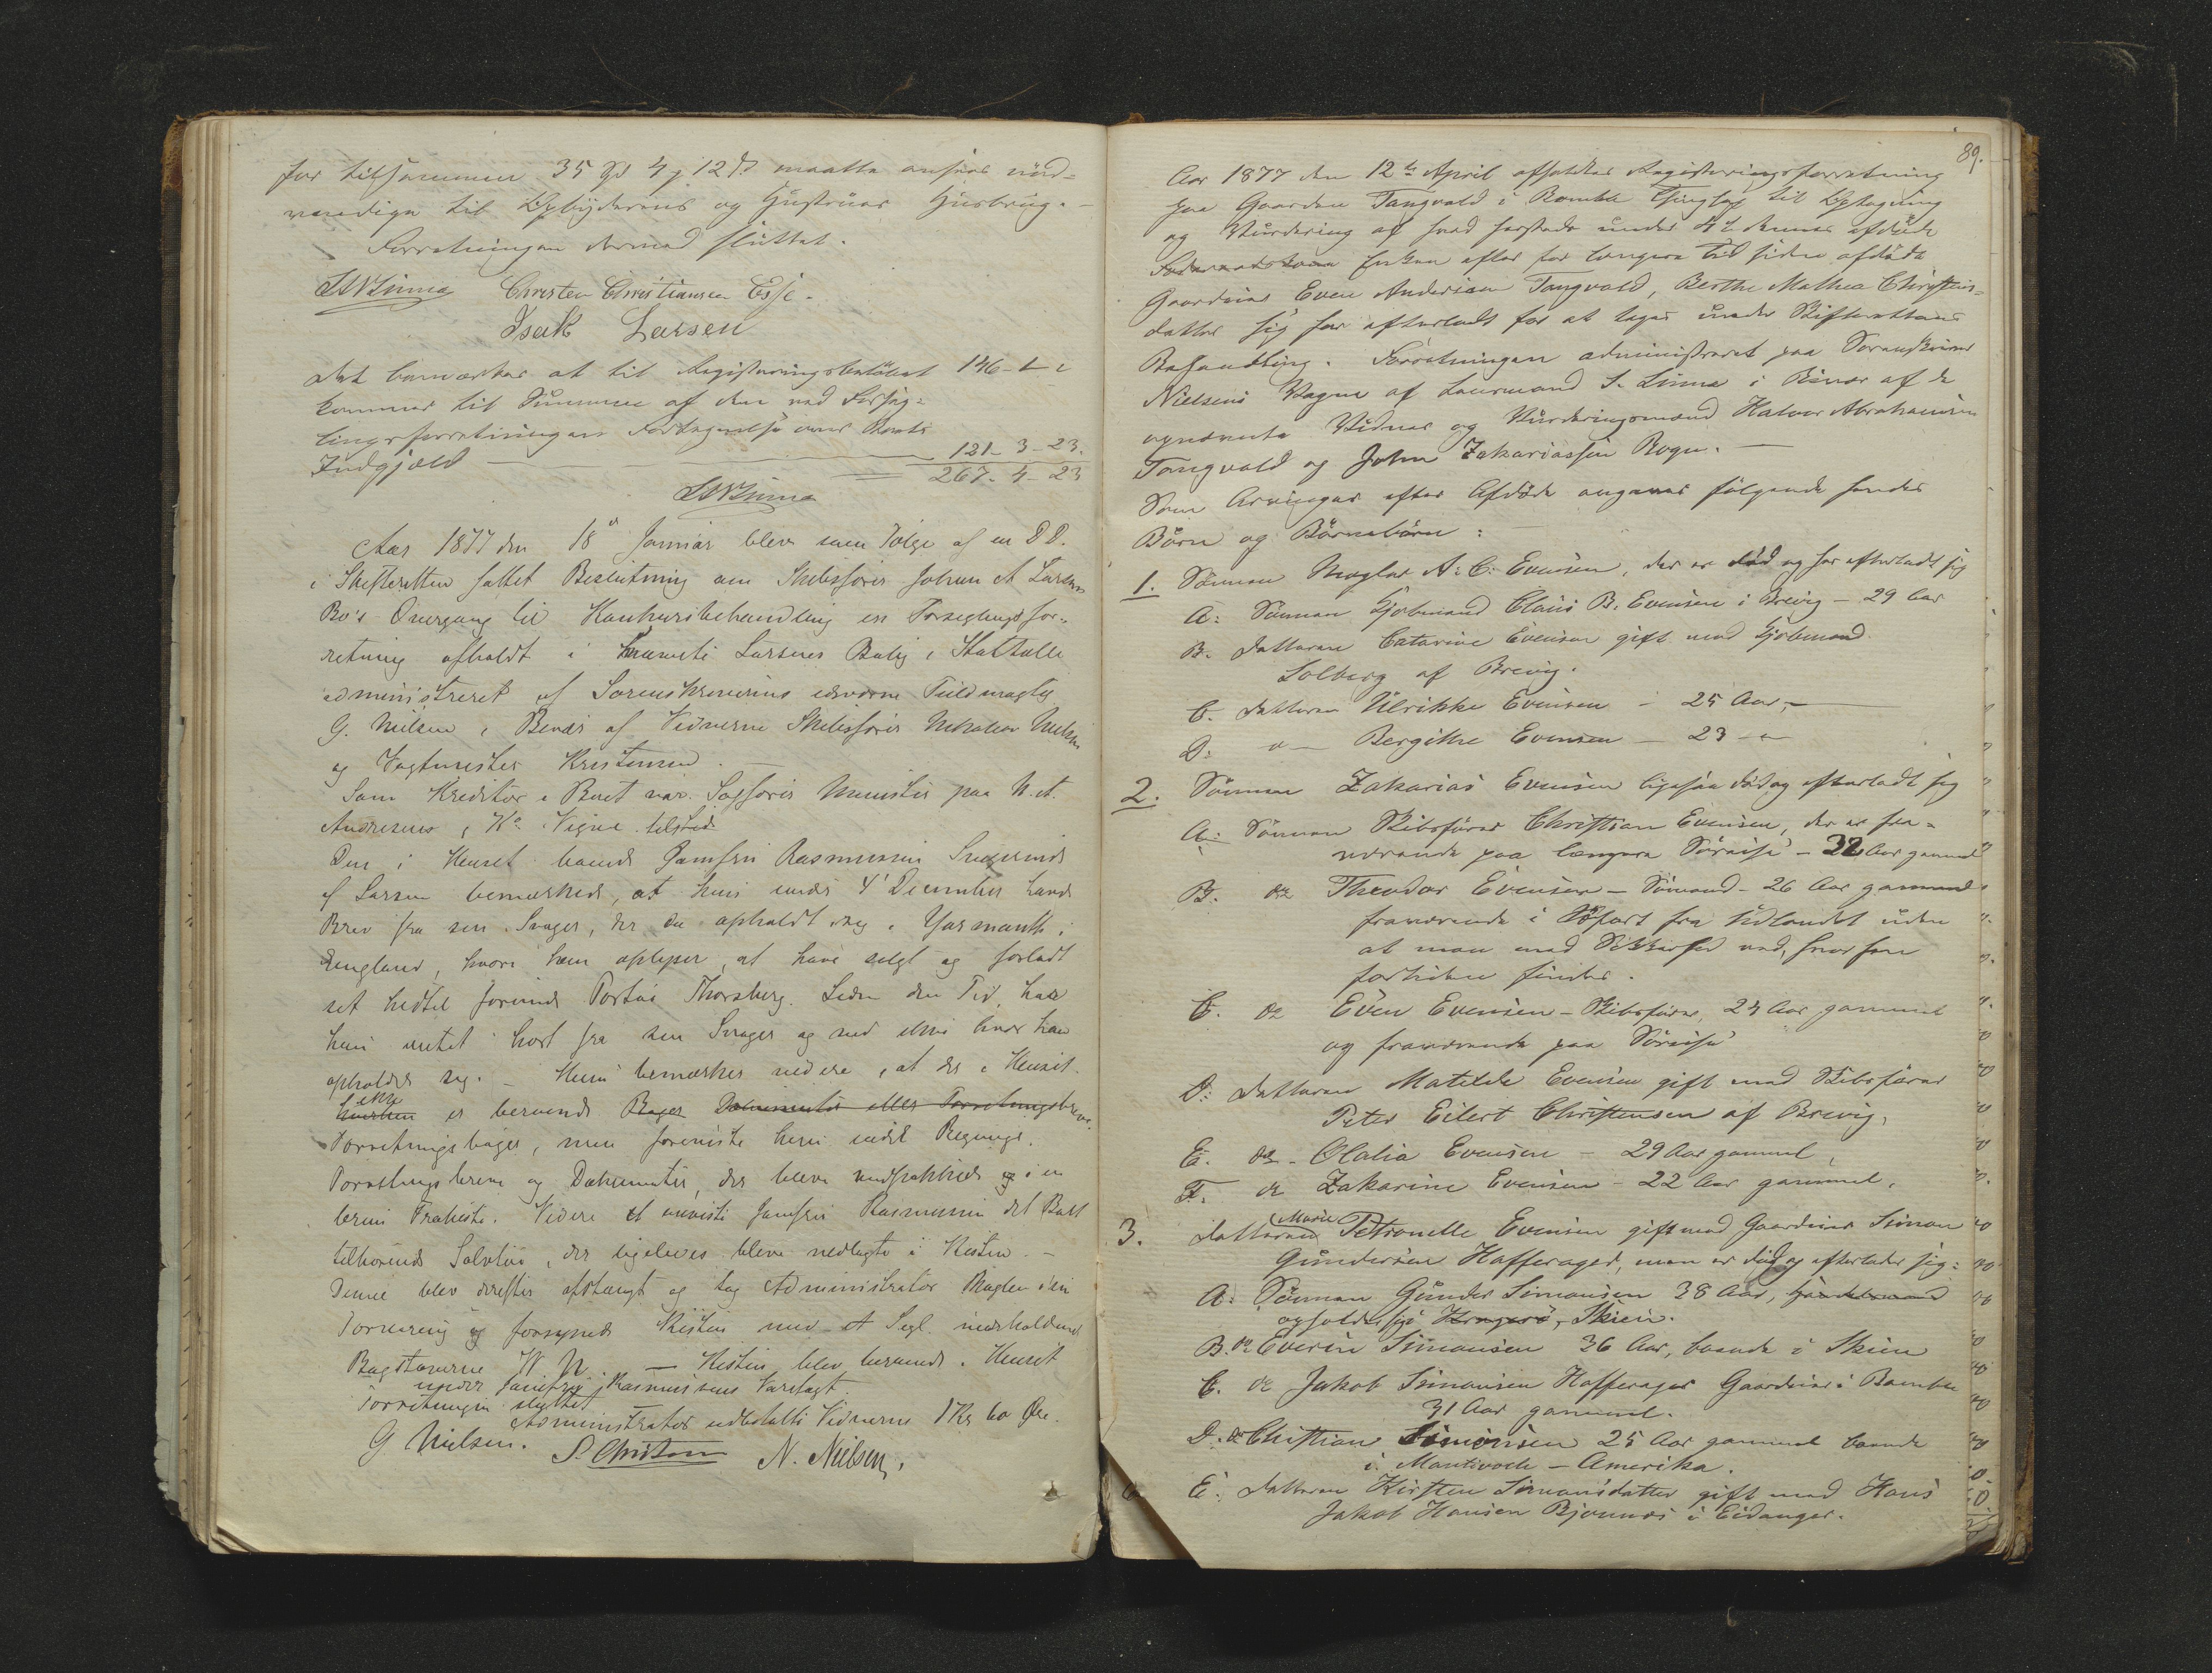 for tilsammen 35 Spd 4 ƒ 12 ß maatte ansees nød-
vendige til Opbyderens og Hustrues Huusbrug. -
Forretningen dermed sluttet.
SN Linna Christen Christiansen Esse.
Isak Larsen
Det bemærkes at til Registreringsbeløbet 146-1-
kommer til Summen af den ved Forseg-
lingsforretningen
Indgjæld 121-3-23.
267-4-23
SN Linna
Aar 1877 den 18de Januar blev som Følge af en D.D.
i Skifteretten fattet Beslutning om Skibsfører Johan A Larsens
Bo's Overgang til Konkursbehandling en Forseglingsfor-
retning afholdt i Larsens Bolig i Stathelle
administreret af Sorenskriverens edsvorne Fuldmægtig
G. Nielsen, i Overvær af Vidnerne Skibsfører Nielsen
og Vagtmester Kristensen.
Som Kreditor i Boet var Sagfører Munster paa N. A.
Andresens & Ko Vegne tilstede.
Den i Huset boende Jomfru Rasmussen Svigerinde
af Larsen bemærkede, at hun under 4de December havde
Brev fra sin Svoger, der da opholdt sig i Yarmouth i
England, hvori han oplyser, at have solgt og forladt
sit hidtil førende Fartøi Thorsberg. Siden den Tid har
hun intet hørt fra sin Svoger og ved ikke hvor han
opholder sig. - Hun bemærker videre, at der i Huset
ikke
er beroende Bøger Dokumenter eller Forretningsbreve
Forretningsbøger, men foreviste hun endel Regninger,
Forretningsbreve og Dokumenter, der bleve nedpakkede i en
Trækiste. Videre foreviste Jomfru Rasmussen det Boet
tilhørende Sølvtøi, der ligeledes bleve nedlagte i Kisten. -
Denne blev derefter aflaaset og tog Administrator Nøglen i sin
Forvaring og forsynede Kisten med et Segl indeholdende
Bogstaverne W N. - Kisten blev beroende i Huset
under Jomfru Rasmussens Varetægt.
Forretningen sluttet
Administrator udbetalte Vidnerne 1 Kr 60 Øre.
G. Nielsen. S. Christensen N. Nielsen.
89.
Aar 1877 den 12te April afholdtes Registreringsforretning
paa Gaarden Tangvald i Bamble Thinglag til Optagning
og Vurdering af hvad den under 4de dennes afdøde
Enken efter for længere Tid siden afdøde
Gaardeier Even Andersen Tangvald, Berthe Mathea Christens-
datter sig har efterladt for at tages under Skifterettens
Behandling. Forretningen administreret paa Sorenskriver
Nielsens Vegne af Lensmand S. Linna i Overvær af de
opnævnte Vidner og Vurderingsmænd Halvor Abrahamsen
Tangvald og John Zakariassen Rogn. -
Som Arvinger efter Afdøde angaves følgende hendes
Børn og Børnebørn:
1. Sønnen Mægler A. C. Evensen, der er død og har efterladt sig
A: Sønnen Kjøbmand Claus B. Evensen i Brevig - 29 Aar
B. Datteren Catarine Evensen gift med Kjøbmand
Solberg af Brevig.
C. Datteren Ulrikke Evensen - 25 Aar, -
D: " - Bergithe Evensen - 23 - " -
2. Sønnen Zakarias Evensen ligesaa død og efterladt sig
A: Sønnen Skibsfører Christian Evensen, der er fra-
værende paa længere Søreise - 32 Aar gammel
B. do Theodor Evensen - Sømand - 26 Aar gammel
fraværende i Søfart fra Udlandet uden
at man med Sikkerhed ved, hvor han
fortiden findes.
C. do Even Evensen - Skibsfører, 24 Aar gammel
og fraværende paa Søreise
D: Datteren Matilde Evensen gift med Skibsfører
Peter Eilert Christensen af Brevig,
E. do - Olalia Evensen - 29 Aar gammel,
F. do Zakarine Evensen - 22 Aar gammel,
3. Datteren (Marie Petronelle Evensen gift med Gaardeier Simon
Gundersen Hafsager, men er død og efterlader sig:
A: Sønnen Gunder Simonsen 38 Aar,
opholder sig i Skien.
B. do Everin Simonsen 36 Aar, boende i Skien
C. do Jakob Simonsen Hafsager Gaardeier i Bamble
31 Aar gammel.
D. do Christian Simonsen 25 Aar gammel boende
i. Mantivoch - Amerika.
E. Datteren Kirsten Simonsdatter gift med Hans
Jakob Hansen Bjønnes i Eidanger.